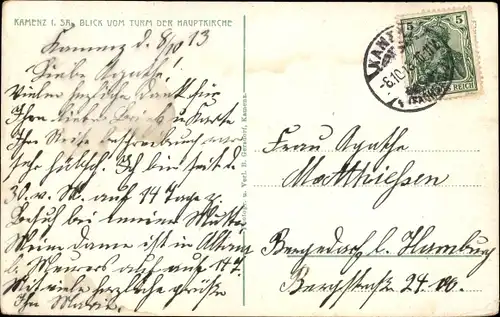 KAMENZ I. SA. BLICK VOM TURM DER HAUPTKIRCHE
Kamenz d. 8/10 13
Liebe Agathe!
Vielen herzliche Dank für
Ihren lieben Brief u. Karte
Ihre Reise beschreibung war
sehr hübsch. Ich bin seit d.
30. v. M. auf 14 Tage z.
Besuch bei meiner Mutter
Meine Dame ist in Altona
b. auf auf 14 T.
Mit viele herzliche Grüße
Ihre
Verl. B. Gersdorf, Kamenz.
5
REICH
KAMENZ
8.10.13
Frau Agathe
Matthiessen
Bergedorf b. Hamburg
Bergstraße 24.